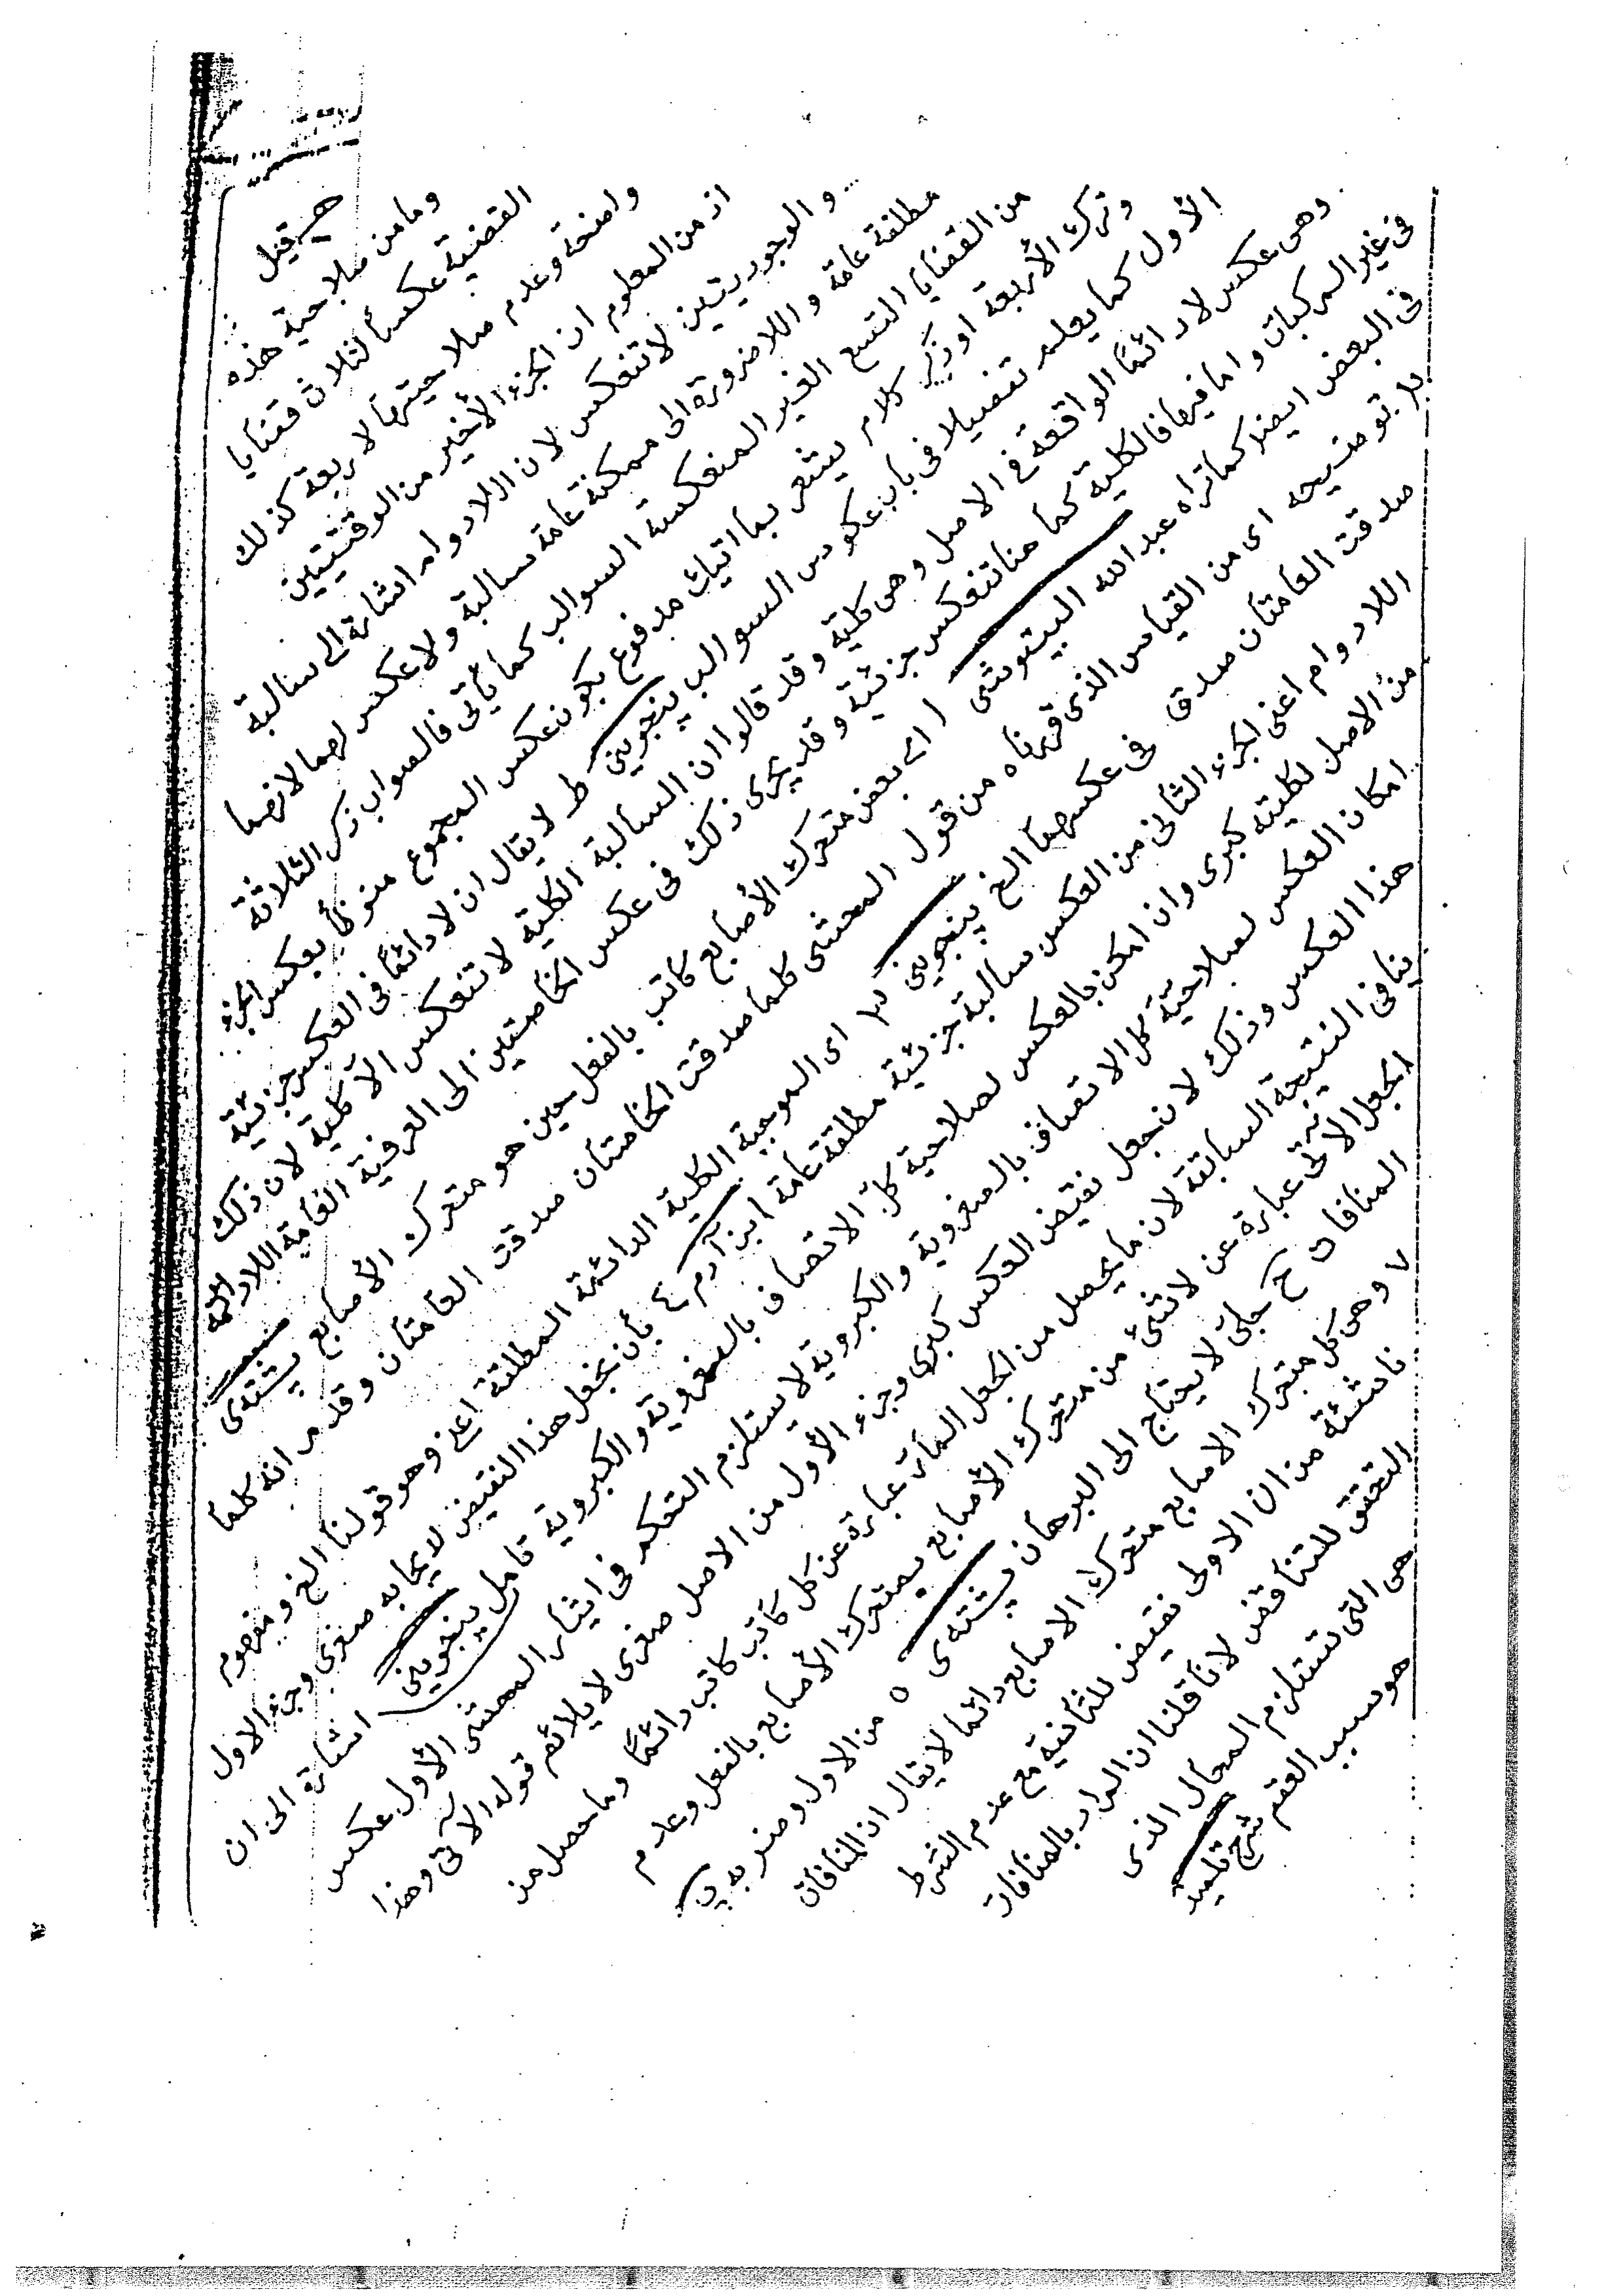 هـ قيل
وما من صلاحية هذه
القضية عكسا لثلاث قضايا
واضحة وعدم صلاحيتها لاربعة كذلك
اذ من المعلوم ان الجزء الأخير من الوقتيتين
والوجوديتين لا تنعكس لان اللادوام اشارة الى سالبة
مطلقة عامة واللاضرورة الى ممكنة عامة سالبة ولا عكس لهما لانهما
من القضايا التسع الغير المنعكسة السوالب كما يأتى فالصواب ذكر الثلاثة
وترك الأربعة او ذكر كلام يشعر بما اتيك مدفوع بكون عكس المجموع منوطا بعكس الجزء
الأول كما يعلم تفصيلا فى باب عكوس السوالب ينجوينى ط لا يقال ان لا دائما فى العكس جزئية
وهى عكس لا دائما الواقعة فى الاصل وهى كلية وقد قالوا ان السالبة الكلية لا تنعكس الا كلية لان ذلك
فى غير المركبات واما فيها فالكلية كما هنا تنعكس جزئية وقد يجرى ذلك فى عكس الخاصتين الى العرفية العامة اللادائمة
فى البعض ايضا كما تراه عبد الله البيتوشى ا اى بعض متحرك الأصابع كاتب بالفعل حين هو متحرك الأصابع پشتدى
بل توضيحه اى من القياس الذى قررناه من قول المحشى كلما صدقت الخاصتان صدقت العامتان وقد مر انه كلما
صدقت العامتان صدق فى عكسهما الخ ينجوينى ٣ اى الموجبة الكلية الدائمة المطلقة اعنى وهو قولنا الخ ومفهوم
اللادوام اعنى الجزء الثانى من العكس سالبة جزئية مطلقة عامة ابن آدم ٤ بأن نجعل هذا النقيض لايجابه صغرى وجزء الاول
من الاصل لكليته كبرى وان امكن بالعكس لصلاحية كل الاتصاف بالصغروية والكبروية تامل ينجوينى اشارة الى ان
امكان العكس لصلاحية كل الاتصاف بالصغروية والكبروية لا يستلزم التحكم فى ايثار المحشى الأول عكس
هذا العكس وذلك لان جعل نقيض العكس كبرى وجزء الأول من الاصل صغرى لا يلائم قوله الآتى وهذا
ينافى النتيجة السابقة لان ما يحصل من الجعل المار عبارة عن كل كاتب كاتب دائما وما حصل من
الجعل الآتى عبارة عن لا شئ من متحرك الأصابع بمتحرك الأصابع بالفعل وعدم
المنافات ح جلى لا يحتاج الى البرهان پشتدى ٥ من الاول
٧ وهى كل متحرك الاصابع متحرك الاصابع دائما لا يقال ان المنافات
ناشئة من ان الاولى نقيض للثانية مع عدم الشرط
التحقق للتناقض لانا قلنا ان المراد بالمنافات
هى التى تستلزم المحال الذى
هو سبب العقم شرح تلميذ